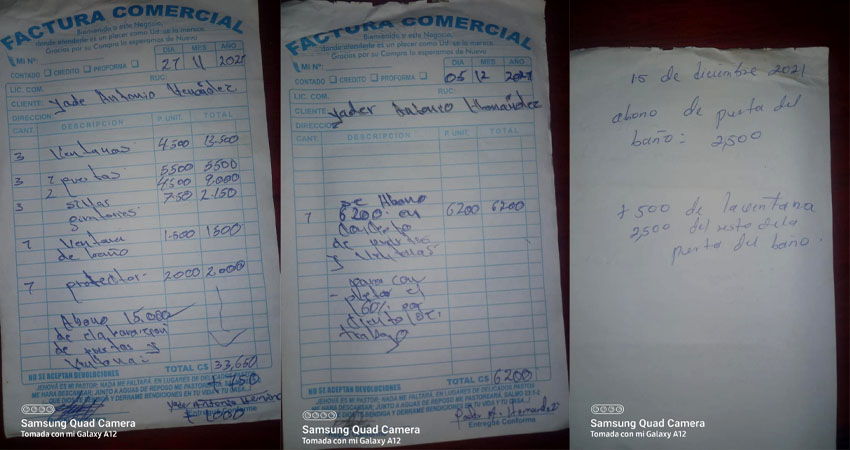 FACTURA COMERCIAL
Bienvenido a este Negocio,
donde atenderle es un placer como Ud. se lo merece.
Gracias por su Compra lo esperamos de Nuevo
DIA MES AÑO
27 11 2021
CONTADO CREDITO PROFORMA
LIC. COM. RUC:
CLIENTE: Yade Antonio Hernández
DIRECCION
CANT. DESCRIPCION P. UNIT. TOTAL
3 Ventanas 4.500 13.500
3 2 puertas 5500 5500
2 4500 9.000
3 750 2.150
1 Ventana 1.500 1500
de baño
1 protector 2000 2.000
Abono 15.000
de elaboracion
de puertas y
Ventana
TOTAL C$ 33,650
NO SE ACEPTAN DEVOLUCIONES
JEHOVÁ ES MI PASTOR; NADA ME FALTARA, EN LUGARES DE DELICADOS PASTOS
ME HARA DESCANSAR; JUNTO A AGUAS DE REPOSO ME PASTOREARA
Samsung Quad Camera
Tomada con mi Galaxy A12
FACTURA COMERCIAL
Bienvenido a este Negocio,
donde atenderle es un placer como Ud. se lo merece.
Gracias por su Compra lo esperamos de Nuevo
DIA MES AÑO
05 12 2021
CONTADO CREDITO PROFORMA
LIC. COM. RUC:
CLIENTE: Yader Antonio Hernández
DIRECCION
CANT. DESCRIPCION P. UNIT. TOTAL
se Abono
1 6200 en 6200 6200
Concepto
de puertas
y Ventanas
para com
pletar el
60% en
trabajo
TOTAL C$ 6200
NO SE ACEPTAN DEVOLUCIONES
JEHOVÁ ES MI PASTOR; NADA ME FALTARA, EN LUGARES DE DELICADOS PASTOS
ME HARA DESCANSAR, JUNTO A AGUAS DE REPOSO ME PASTOREARA
Entregue Conforme
Samsung Quad Camera
Tomada con mi Galaxy A12
15 de diciembre 2021
abono de puerta del
baño: 2,500
+ 500 de la ventana
2,500 del resto de la
puerta del baño.
Samsung Quad Camera
Tomada con mi Galaxy A12